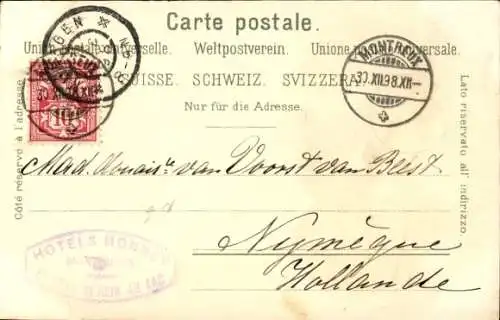 Carte postale.
Union postale universelle. Weltpostverein. Unione postale universale.
SUISSE. SCHWEIZ. SVIZZERA.
Nur für die Adresse.
Côté réservé à l'adresse.
Lato riservato all' indirizzo.
MONTREUX
XII.98.XII
10
Mad. Douair. van Voorst van Beest
Nymègue
Hollande
HOTELS